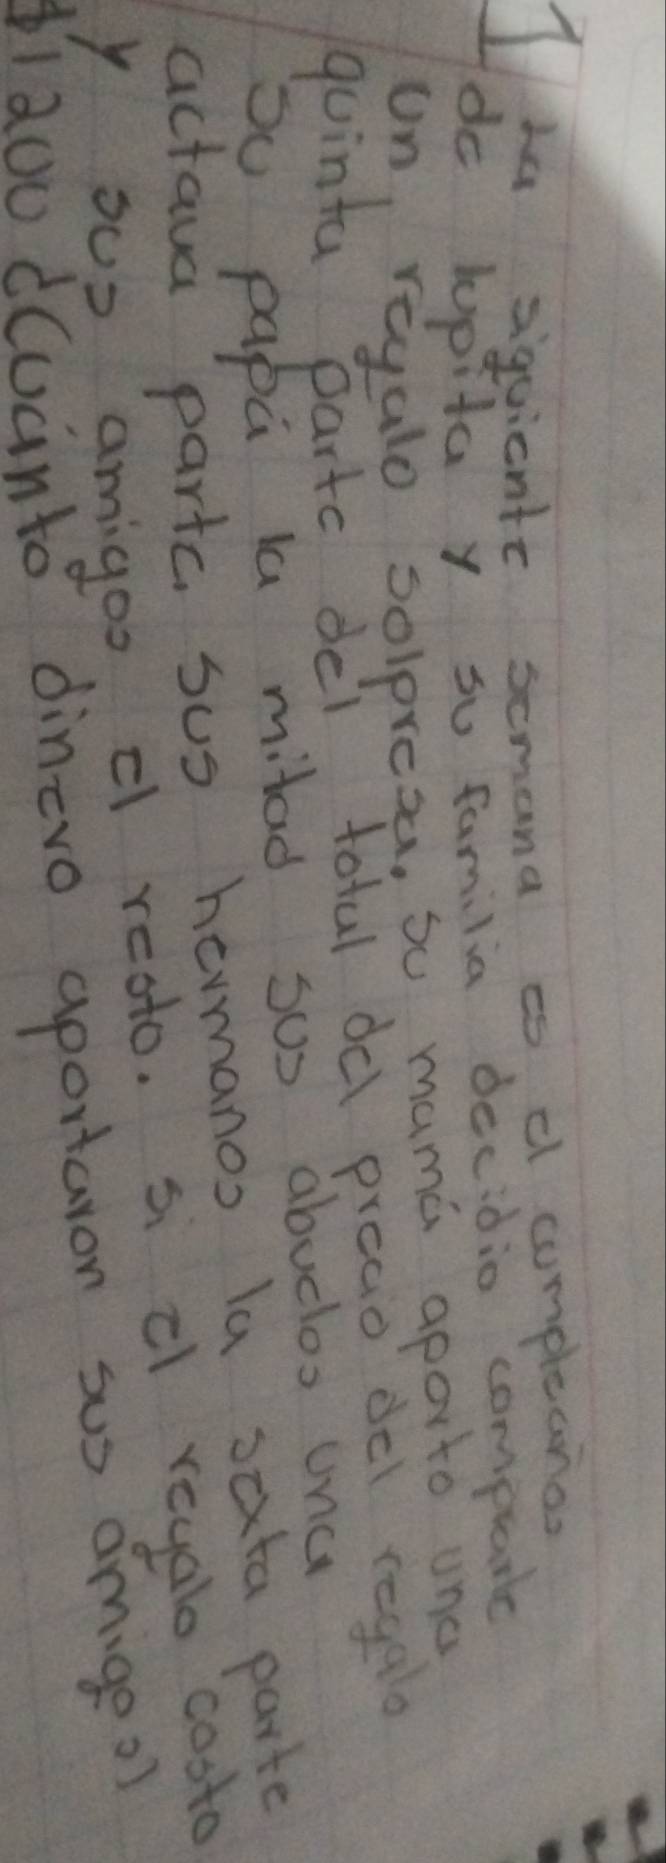 1 La siguiente semana es el cumpleaños
de lupita y su familia decidio comprarle
un regalo solpresa, su mamá aporto una
quinta parte del total del precio del regalo
su papá la mitad sus abuelos una
actava parte, sus hermanos la sexta parte
y sus amigos el resto. si el regalo costo
$1200 ¿Cuánto dinero aportaron sus amigos?